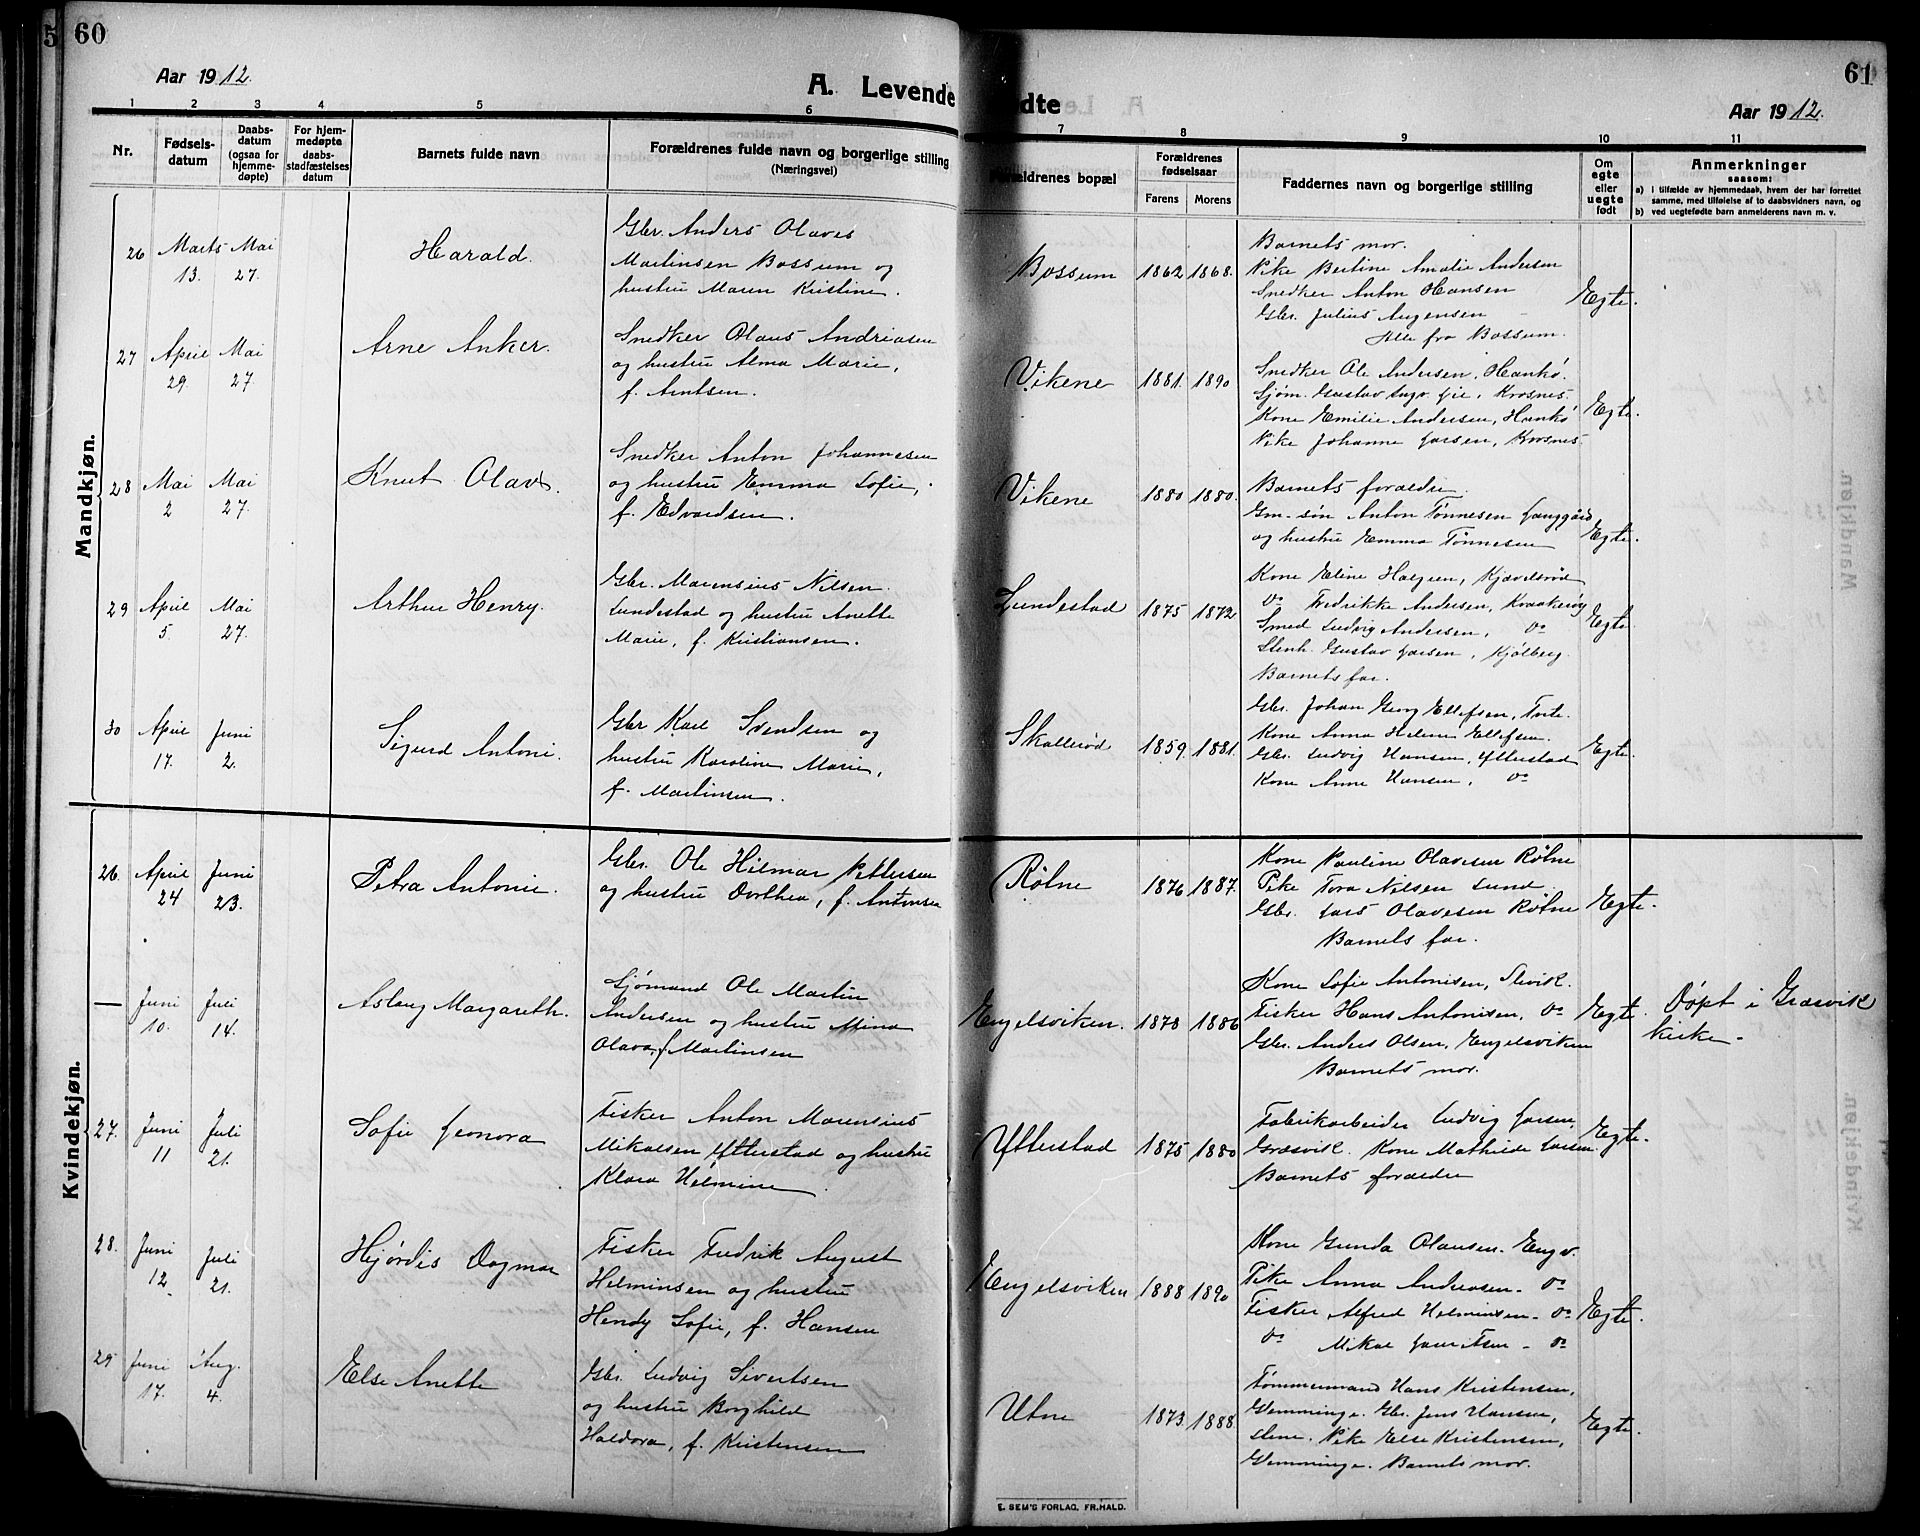 60
Aar 1912.
A. Levende
1 2 3 4 5 6
Nr.
Fødsels-
datum
Daabs-
datum
(ogsaa for
hjemme-
døpte)
For hjem-
medøpte
daabs-
stadfæstelses
datum
Barnets fulde navn
Forældrenes fulde navn og borgerlige stilling
(Næringsvei)
Mandkjøn.
26 Marts 13. Mai 27. Harald.
Gbr. Anders Olaves
Martinsen Bossum og
hustru Maren Kristine.
27 April 29. Mai 27. Arne Anker.
Snedker Olaus Andriasen
og hustru Alma Marie,
f. Arntsen.
28 Mai 2 Mai 27. Knut Olav.
Snedker Anton Johannesen
og hustru Emma Sofie,
f. Edvardsen.
29 April 5. Mai 27. Arthur Henry.
Gbr. Marensius Nilsen
Lundestad og hustru Anette
Marie, f. Kristiansen.
30 April 17. Juni 2. Sigurd Antoni.
Gbr Karl Svendsen og
hustru Karoline Marie,
f. Martinsen.
Kvindekjøn.
26. April 24 Juni 23. Petra Antonie.
Gbr. Ole Hilmar Pettersen
og hustru Dorthea, f. Antonsen
— Juni 10. Juli 14. Aslaug Margareth.
Sjømand Ole Martin
Andersen og hustru Mina
Olava, f. Martinsen
27. Juni 11 Juli 21. Sofie Leonora
Fisker Anton Marensius
Mikalsen Ytterstad og hustru
Klara Helmine.
28. Juni 12 Juli 21. Hjørdis Dagmar
Fisker Fredrik August
Helminsen og hustru
Hendy Sofie, f. Hansen
29 Juni 17. Aug. 4. Else Anette
Gbr. Ludvig Sivertsen
og hustru Borghild
Haldora, f. Kristensen
61
ødte
Aar 1912.
7 8 9 10 11
Forældrenes bopæl
Forældrenes
fødselsaar
Farens Morens
Faddernes navn og borgerlige stilling
Om
egte
eller
uegte
født
Anmerkninger
saasom:
a) i tilfælde av hjemmedaab, hvem der har forrettet
samme, med tilføielse af to daabsvidners navn, og
b) ved uegtefødte barn anmelderens navn m. v.
Bossum 1862 1868.
Barnets mor.
Pike Bertine Amalie Andersen
Snedker Anton Hansen
Gbr. Julius Augensen
Alle fra Bossum.
Egte.
Vikene 1881. 1890
Snedker Ole Andersen, Hankø.
Sjøm. Gustav Krosnes.
Kone Emilie Andersen, Hankø
Pike Johanne Larsen, Korsnes.
Egte.
Vikene 1880 1880.
Barnets forældre.
Gm-søn Anton Tønnesen Langgård
og hustru Emma Tønnesen
Egte.
Lundestad 1875 1872
Kone Eline Halgsen, Kjævelsrød
Do Fredrikke Andersen, Kraakerøy
Smed Ludvig Andersen, Do
Stenh. Gustav Larsen, Kjølberg.
Barnets far.
Egte.
Skallerød 1859. 1881.
Gbr. Johan Georg Ellefsen, Tvete.
Kone Anna Helene Ellefsen.
Gbr. Ludvig Hansen, Ytterstad
Kone Anne Hansen, Do
Egte.
Røtne 1876 1887.
Kone Pauline Olavesen Røtne
Pike Tora Nilsen Lund.
Gbr. Lars Olavesen Røtne
Barnets far.
Egte.
Engelsviken. 1878 1886
Kone Sofie Antonisen, Slevik.
Fisker Hans Antonisen, Do
Gbr. Anders Olsen, Engelsviken
Barnets mor.
Egte.
Døpt i Græsvik
kirke.
Ytterstad 1875 1880
Fabrikarbeider Ludvig Larsen,
Græsvik. Kone Mathilde Larsen
Barnets forældre
Egte.
Engelsviken 1888 1890
Kone Gunda Olausen. Engv.
Pike Anna Andreasen. Do
Fisker Alfred Helminsen. Do
Do Mikal Lauritsen. Do
Egte.
Utne 1873 1888.
Tømmermand Hans Kristensen,
Glemminge. Gbr. Jens Hansen,
stene. Pike Else Kristensen,
Glemminge. Barnets mor.
Egte.
E. SEM'S FORLAG, FR.HALD.